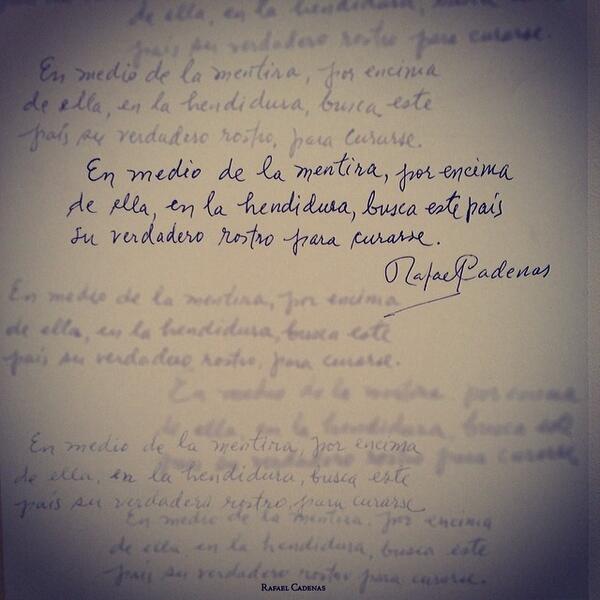 de ella, en la hendidura, busca este
país su verdadero rostro para curarse.
En medio de la mentira, por encima
de ella, en la hendidura, busca este
país su verdadero rostro, para curarse.
En medio de la mentira, por encima
de ella, en la hendidura, busca este país
su verdadero rostro para curarse.
Rafael Cadenas
En medio de la mentira, por encima
de ella, en la hendidura, busca este
país su verdadero rostro, para curarse.
En medio de la mentira por encima
de ella, en la hendidura, busca este
país su verdadero rostro para curarse
En medio de la mentira, por encima
de ella, en la hendidura, busca este
país su verdadero rostro, para curarse
En medio de la mentira, por encima
de ella, en la hendidura, busca este
país su verdadero rostro para curarse.
RAFAEL CADENAS